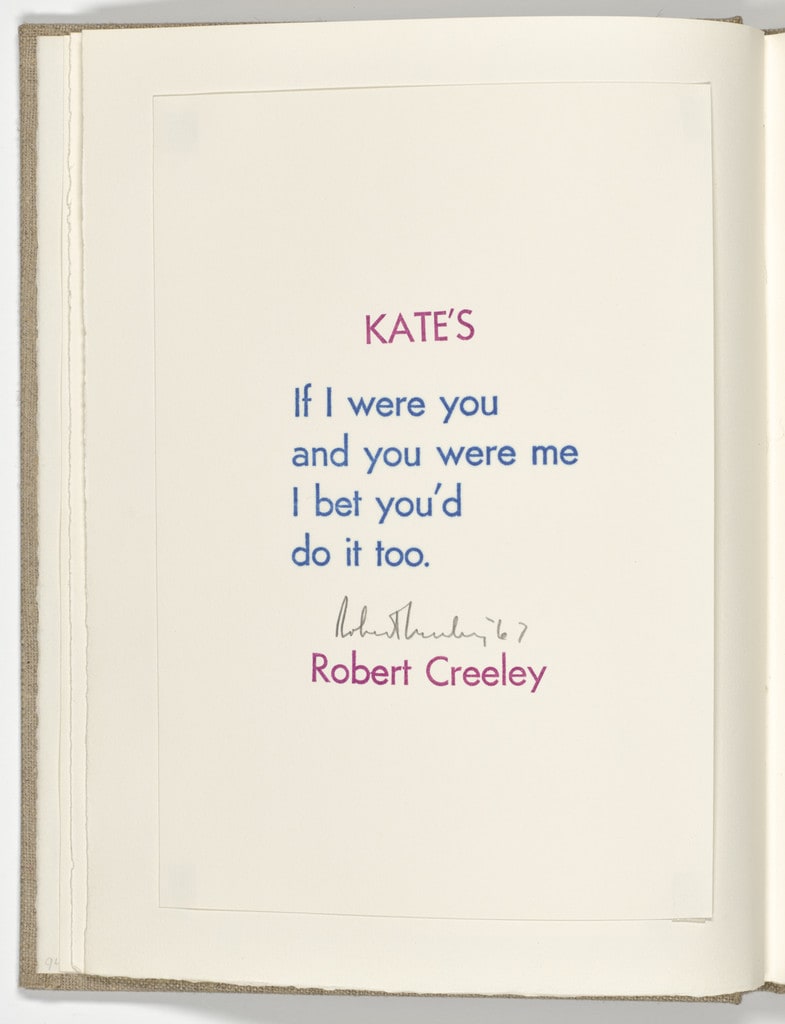 KATE'S
If I were you
and you were me
I bet you'd
do it too.
Robert Creeley '67
Robert Creeley
94